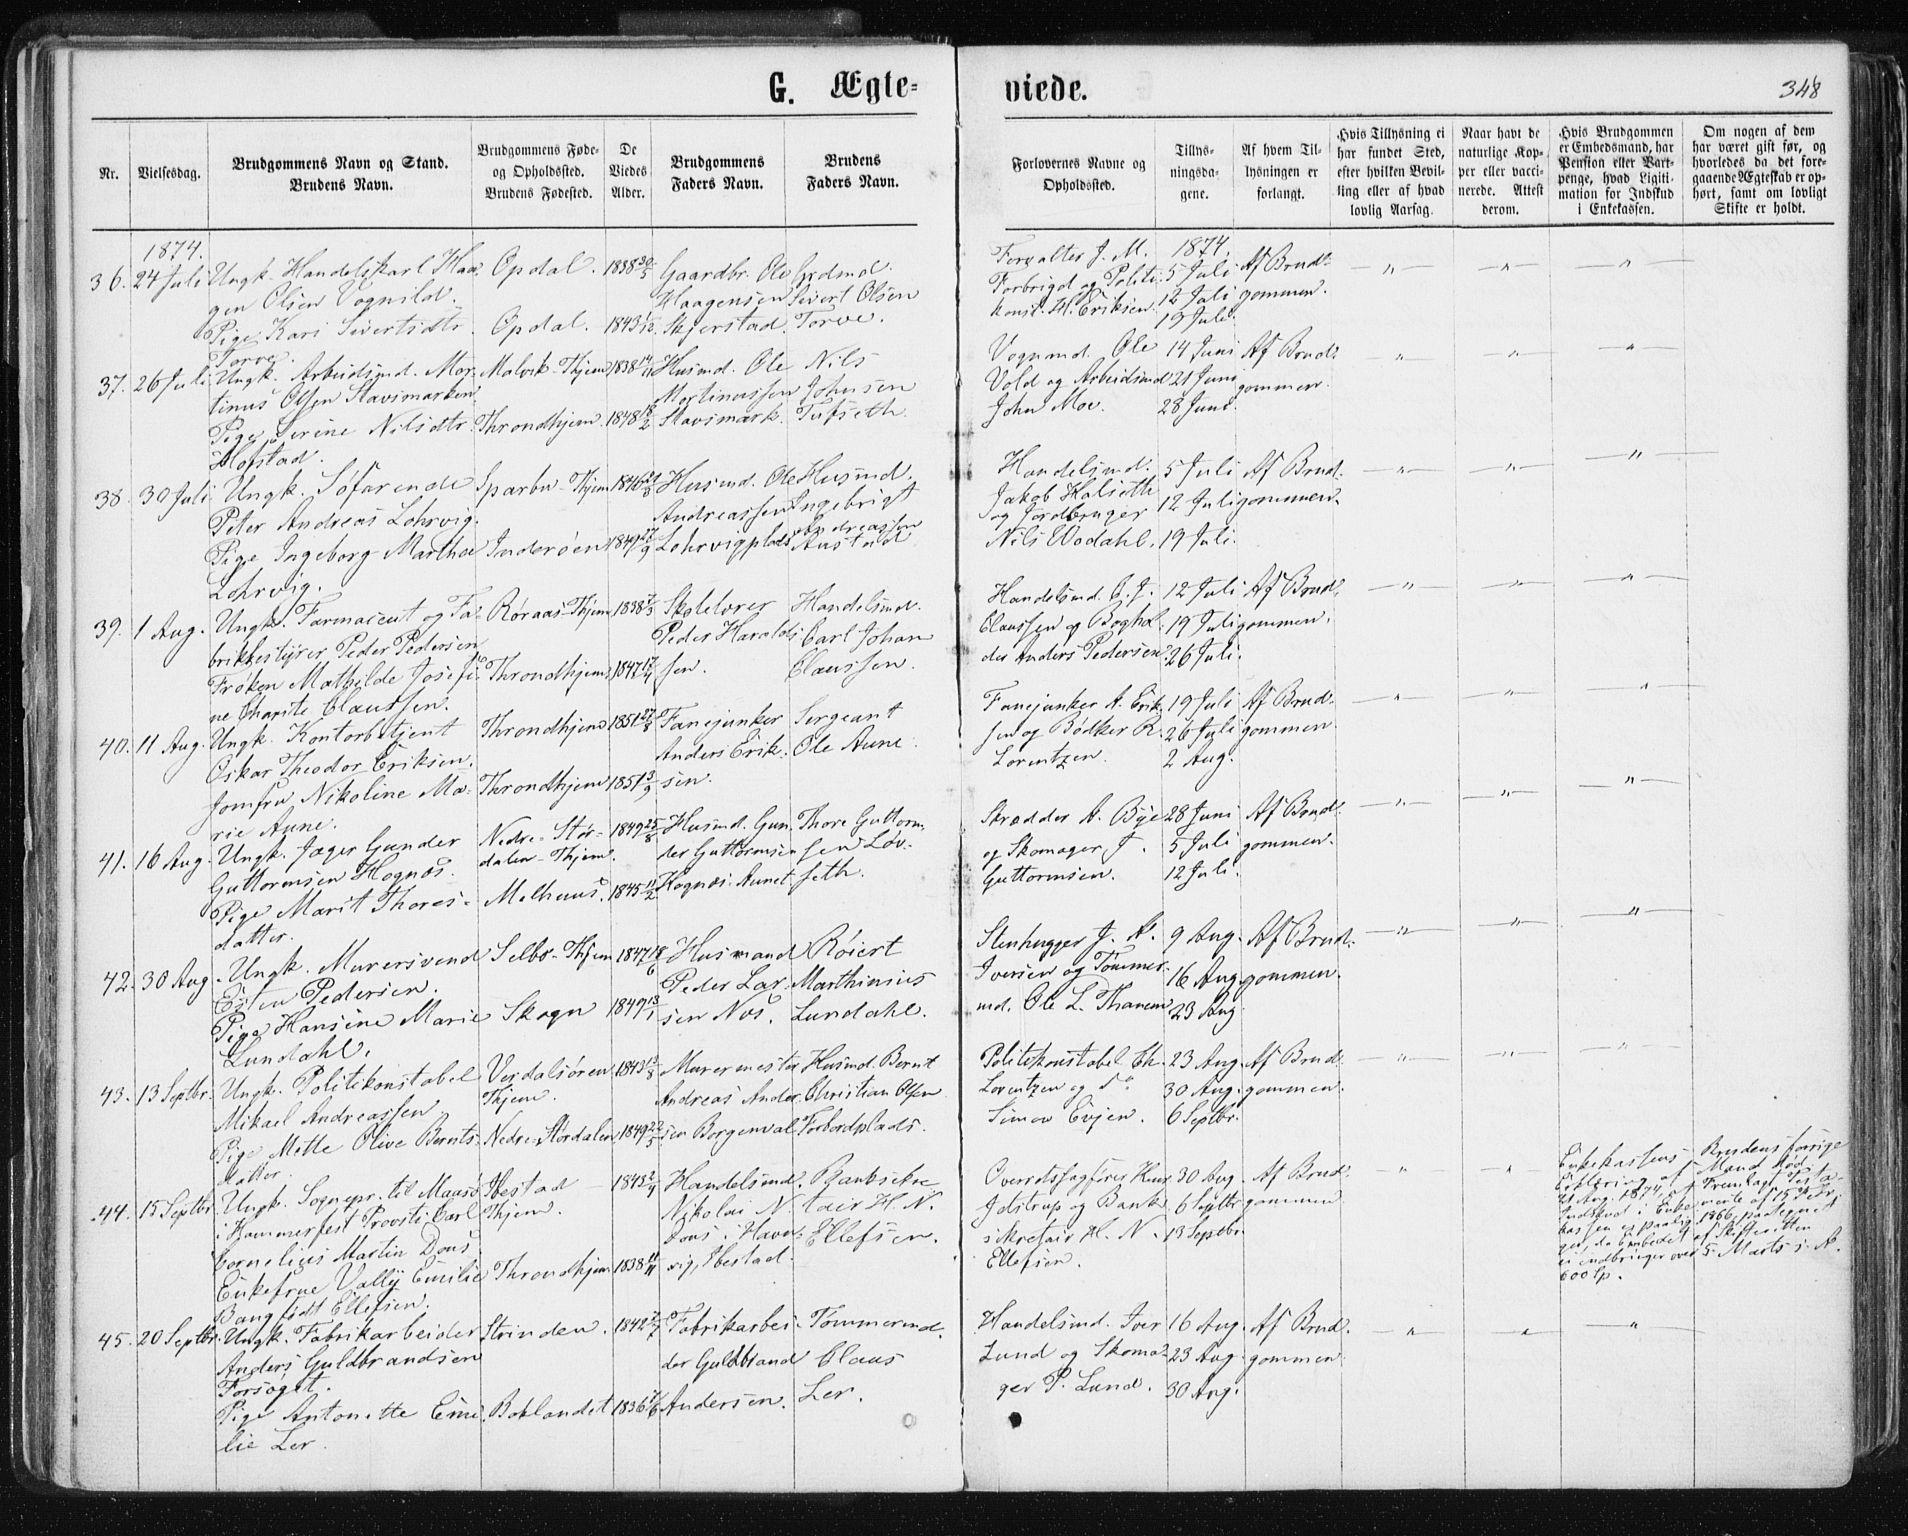 G. Ægte-
viede.
348
Nr.
Vielsesdag.
Brudgommens Navn og Stand.
Brudens Navn.
Brudgommens Føde-
og Opholdssted.
Brudens Fødested.
De
Viedes
Alder.
Brudgommens
Faders Navn.
Brudens
Faders Navn.
Forlovernes Navne og
Opholdssted.
Tillys-
ningsda-
gene.
Af hvem Til-
lysningen er
forlangt.
Hvis Tillysning ei
har fundet Sted,
efter hvilken Bevil-
ling eller af hvad
lovlig Aarsag.
Naar havt de
naturlige Kop-
per eller vacci-
nerede. Attest
derom.
Hvis Brudgommen
er Embedsmand, har
Pension eller Vart-
penge, hvad Ligiti-
mation for Indskud
i Enkekassen.
Om nogen af dem
har været gift før, og
hvorledes da det fore-
gaaende Ægteskab er op-
hørt, samt om lovligt
Skifte er holdt.
1874.
36. 24 Juli
Ungk. Handelskarl Haa-
gen Olsen Vognild.
Pige Kari Sivertsdtr.
Torve.
Opdal.
Opdal.
1838 20/5
1843 1/12
Gaardbr. Ole
Haagensen
Skjerstad.
Grdmd.
Sivert Olsen
Torve.
Forvalter J. M.
Forbrigd og Politi-
konst. H. Eriksen.
1874.
5 Juli
12 Juli
19 Juli.
Af Brud-
gommen.
— " —
— " —
— " —
37. 26 Juli
Ungk. Arbeidsmd. Mor-
tinus Olsen Stavsmarken
Pige Serine Nilsdtr.
Hofstad.
Malvik-Thjem
Throndhjem
1838 14/11
1848 18/2
Husmd. Ole
Mortinussen
Stavsmark.
Nils
Johnsen
Tufseth.
Vognmd. Ole
Vold og Arbeidsmd
John Moe.
14 Juni
21 Juni
28 Juni.
Af Brud-
gommen.
"
"
"
38. 30 Juli
Ungk. Søfarende
Peter Andreas Lohrvig.
Pige Ingeborg Martha
Lohrvig.
Sparbu-Thjem
Inderøen
Husmd. Ole
Andreassen
Lohrvigplads
Husmd.
Ingebrigt
Andreassen
Austad
Handelsmd.
Jakob Halseth
og Jordbruger
Nils Wodahl.
5 Juli
12 Juli
19 Juli.
Af Brud-
gommen.
— " —
— " —
— " —
39. 1 Aug.
Ungk. Farmaceut og Fa-
brikkestyrer Peder Pedersen
Frøken Mathilde Josefi-
ne Charite Claussen.
Røraas-Thjem
Throndhjem
Skolelærer
Peder Harolds-
sen.
Handelsmd.
Carl Johan
Claussen.
Handelsmd. C. J.
Claussen og Boghol-
der Anders Pedersen.
12 Juli
19 Juli
26 Juli.
Af Brud-
gommen.
— " —
— " —
— " —
40. 11 Aug.
Ungk. Kontorbetjent
Oskar Theodor Eriksen.
Jomfru Nikoline Ma-
rie Aune.
Throndhjem
Throndhjem
1851 27/8
1851 3/9
Fanejunker
Anders Erik-
sen.
Sergeant
Ole Aune.
Fanejunker A. Erik-
sen og Bødker R.
Lorentzen.
19 Juli
26 Juli
2 Aug.
Af Brud-
gommen.
— " —
— " —
— " —
41. 16 Aug.
Ungk. Jæger Gunder
Guttormsen Hognæs.
Pige Marit Thores-
datter.
Nedre-Stør-
dalen-Thjem.
Melhuus.
1849 25/8
1845 11/2
Husmd. Gun-
der Guttormsen
Hognæs-Aunet
Thore Guttorm-
sen Løv-
seth.
Skrædder A. Bye
og Skomager J.
Guttormsen.
28 Juni
5 Juli
12 Juli.
Af Brud-
gommen.
— " —
— " —
— " —
42. 30 Aug.
Ungk. Murersvend
Esten Pedersen.
Pige Hansine Marie
Lundahl.
Selbo-Thjem
Skogn
1847 18/6
1849 13/1
Husmand
Peder Lar-
sen Nos.
Røiert
Marthinius
Lundahl.
Stenhugger J. A.
Iversen og Tømmer-
md. Ole L. Thanem
9 Aug.
16 Aug.
23 Aug.
Af Brud-
gommen.
— " —
— " —
— " —
43. 13 Septbr.
Ungk. Politikonstabel
Mikael Andreassen
Pige Mette Olive Bernts-
datter.
Verdalsøren
Thjem.
Nedre-Størdalen
1843 13/8
1849 22/5
Murermester
Andreas Ander-
sen Borgenvald
Husmd. Bernt
Christian Olsen
Forbordplads.
Politikonstabel Ch.
Lorentzen og do
Simon Evjen.
23 Aug.
30 Aug.
6 Septbr.
Af Brud-
gommen.
— " —
— " —
— " —
44. 15 Septbr.
Ungk. Sognepr. til Maasø
i Hammerfest Provsti Carl
Cornelius Martin Dons.
Enkefrue Vally Emilie
Bang født Ellefsen.
Ibestad
Thjem.
Throndhjem
1843 2/4
1838 11/11
Handelsmd.
Nikolai N.
Dons i Havn-
vig, Ibestad.
Banksekre-
tair H. N.
Ellefsen.
Overretssagfører Hans
Jdstrup og Bank-
sekretair H. N.
Ellefsen.
30 Aug.
6 Septbr.
13 Septbr.
Af Brud-
gommen
"
"
Enkekassens
Erklæring af
21 Aug. 1874, at
Indskud i Enke-
kassen ei paalig-
ger, da Embedet
ei indbringer over
600 Sp.
Brudens forrige
Mand død.
Fremlagt Testa-
mente af 15de Fbr.
1866, paategnet
af Skifteretten
5 Marts s. A.
45. 20 Septbr.
Ungk. Fabrikarbeider
Anders Guldbrandsen
Forsøget.
Pige Antonette Emi-
lie Ler.
Strinden.
Baklandet
Fabrikarbei-
der Guldbrand
Andersen.
Tømmermd.
Claus
Ler.
Handelsmd. Iver
Lund og Skoma-
ger P. Lund.
16 Aug.
23 Aug.
30 Aug.
Af Brud-
gommen.
— " —
"
— " —